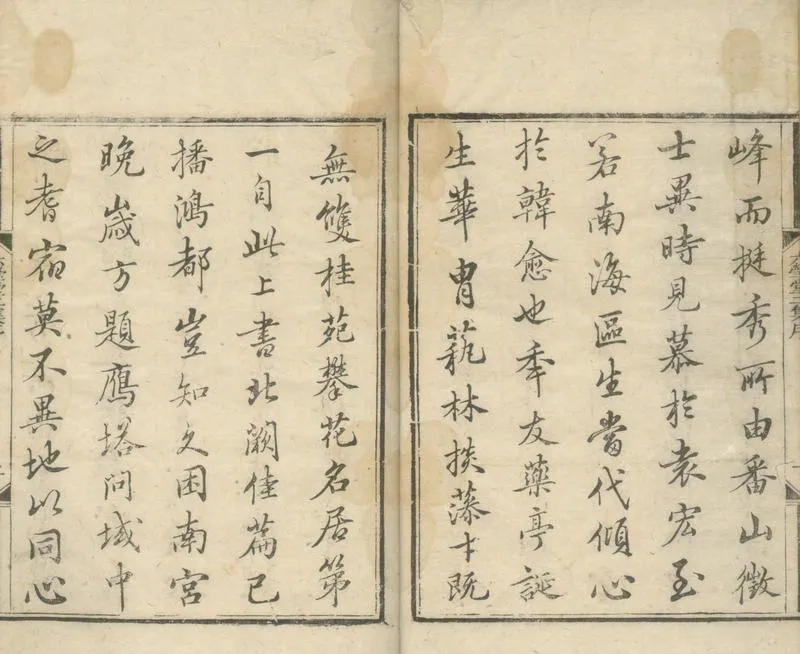 峰而挺秀所由番山徵
士異時見慕於袁宏至
若南海區生當代傾心
於韓愈也年友藥亭誕
生華胄蓺林掞藻才既
無雙桂苑攀花名居第
一自此上書北闕佳篇已
播鴻都豈知久困南宮
晚歲方題鴈塔問城中
之耆宿莫不異地以同心